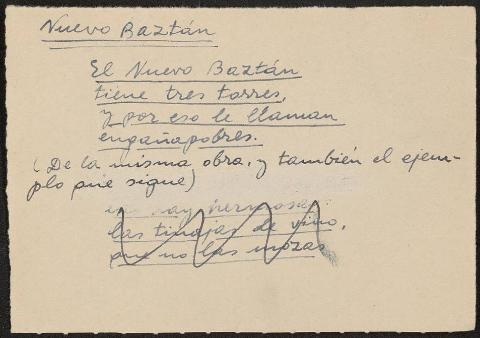 Nuevo Baztán
El Nuevo Baztán
tiene tres torres,
y por eso le llaman
engañapobres.
(De la misma obra, y también el ejem-
plo que sigue)
hay hermosas:
las tinajas de vino,
que no las mozas